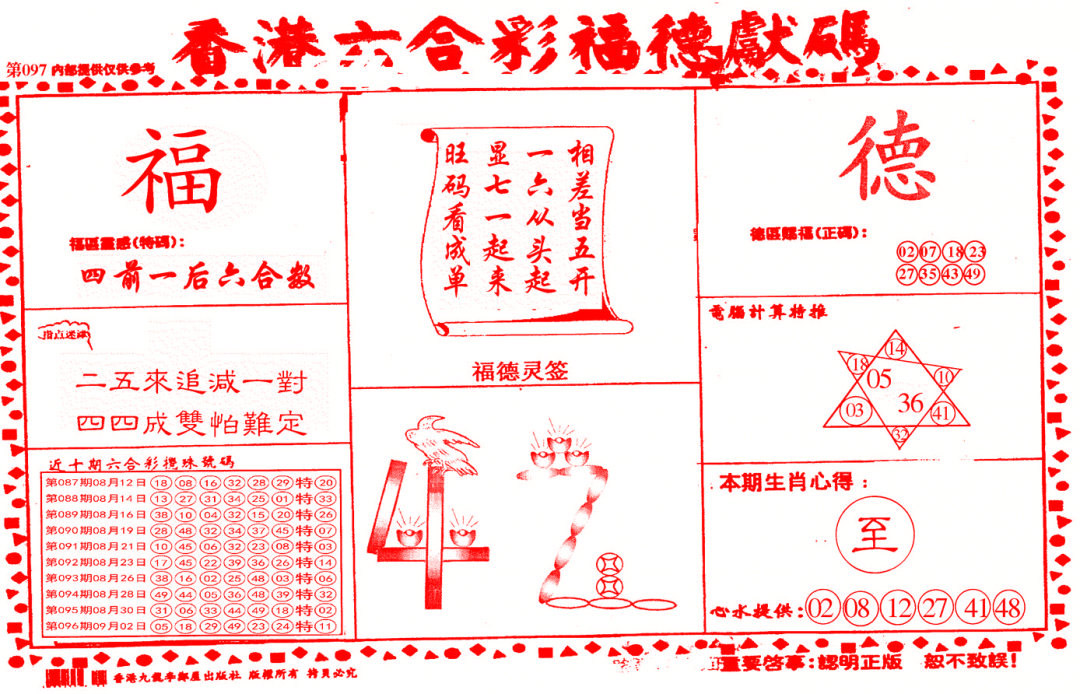 香港六合彩福德獻碼
第097 内部提供仅供参考
福
福區靈感(特碼):
四前一后六合数
指点迷津
二五來追减一對
四四成雙怕難定
近十期六合彩攪珠號碼
第087期08月12日 18 08 16 32 28 29 特 20
第088期08月14日 13 27 31 34 25 01 特 33
第089期08月16日 38 10 04 32 15 20 特 26
第090期08月19日 28 48 32 34 37 45 特 07
第091期08月21日 10 45 06 32 23 08 特 03
第092期08月23日 17 45 22 39 36 26 特 14
第093期08月26日 38 16 02 25 48 03 特 06
第094期08月28日 49 44 05 36 48 39 特 32
第095期08月30日 31 06 33 44 49 18 特 02
第096期09月02日 05 18 29 49 23 24 特 11
相差当五开
一六从头起
显七一起来
旺码看成单
福德灵签
德
德區賜福(正碼):
02 07 18 23
27 35 43 49
電腦計算特推
14
18
10
05
36
03
41
32
本期生肖心得:
至
心水提供: 02 08 12 27 41 48
香港九龍李鄭屋出版社 版權所有 拷貝必究
重要啓事:認明正版 恕不致誤!